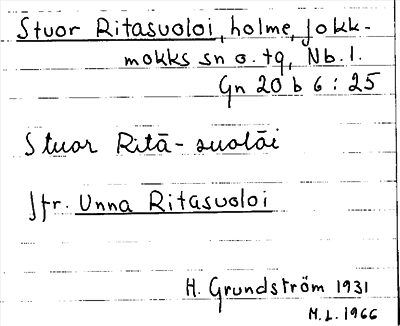 Stuor Ritasuoloi, holme, Jokk-
mokks sn o. tg, Nb. l.
Gn 20 b 6 : 25
Stuor Ritā- suolāi
Jfr. Unna Ritasuoloi
H. Grundström 1931
M.L. 1966